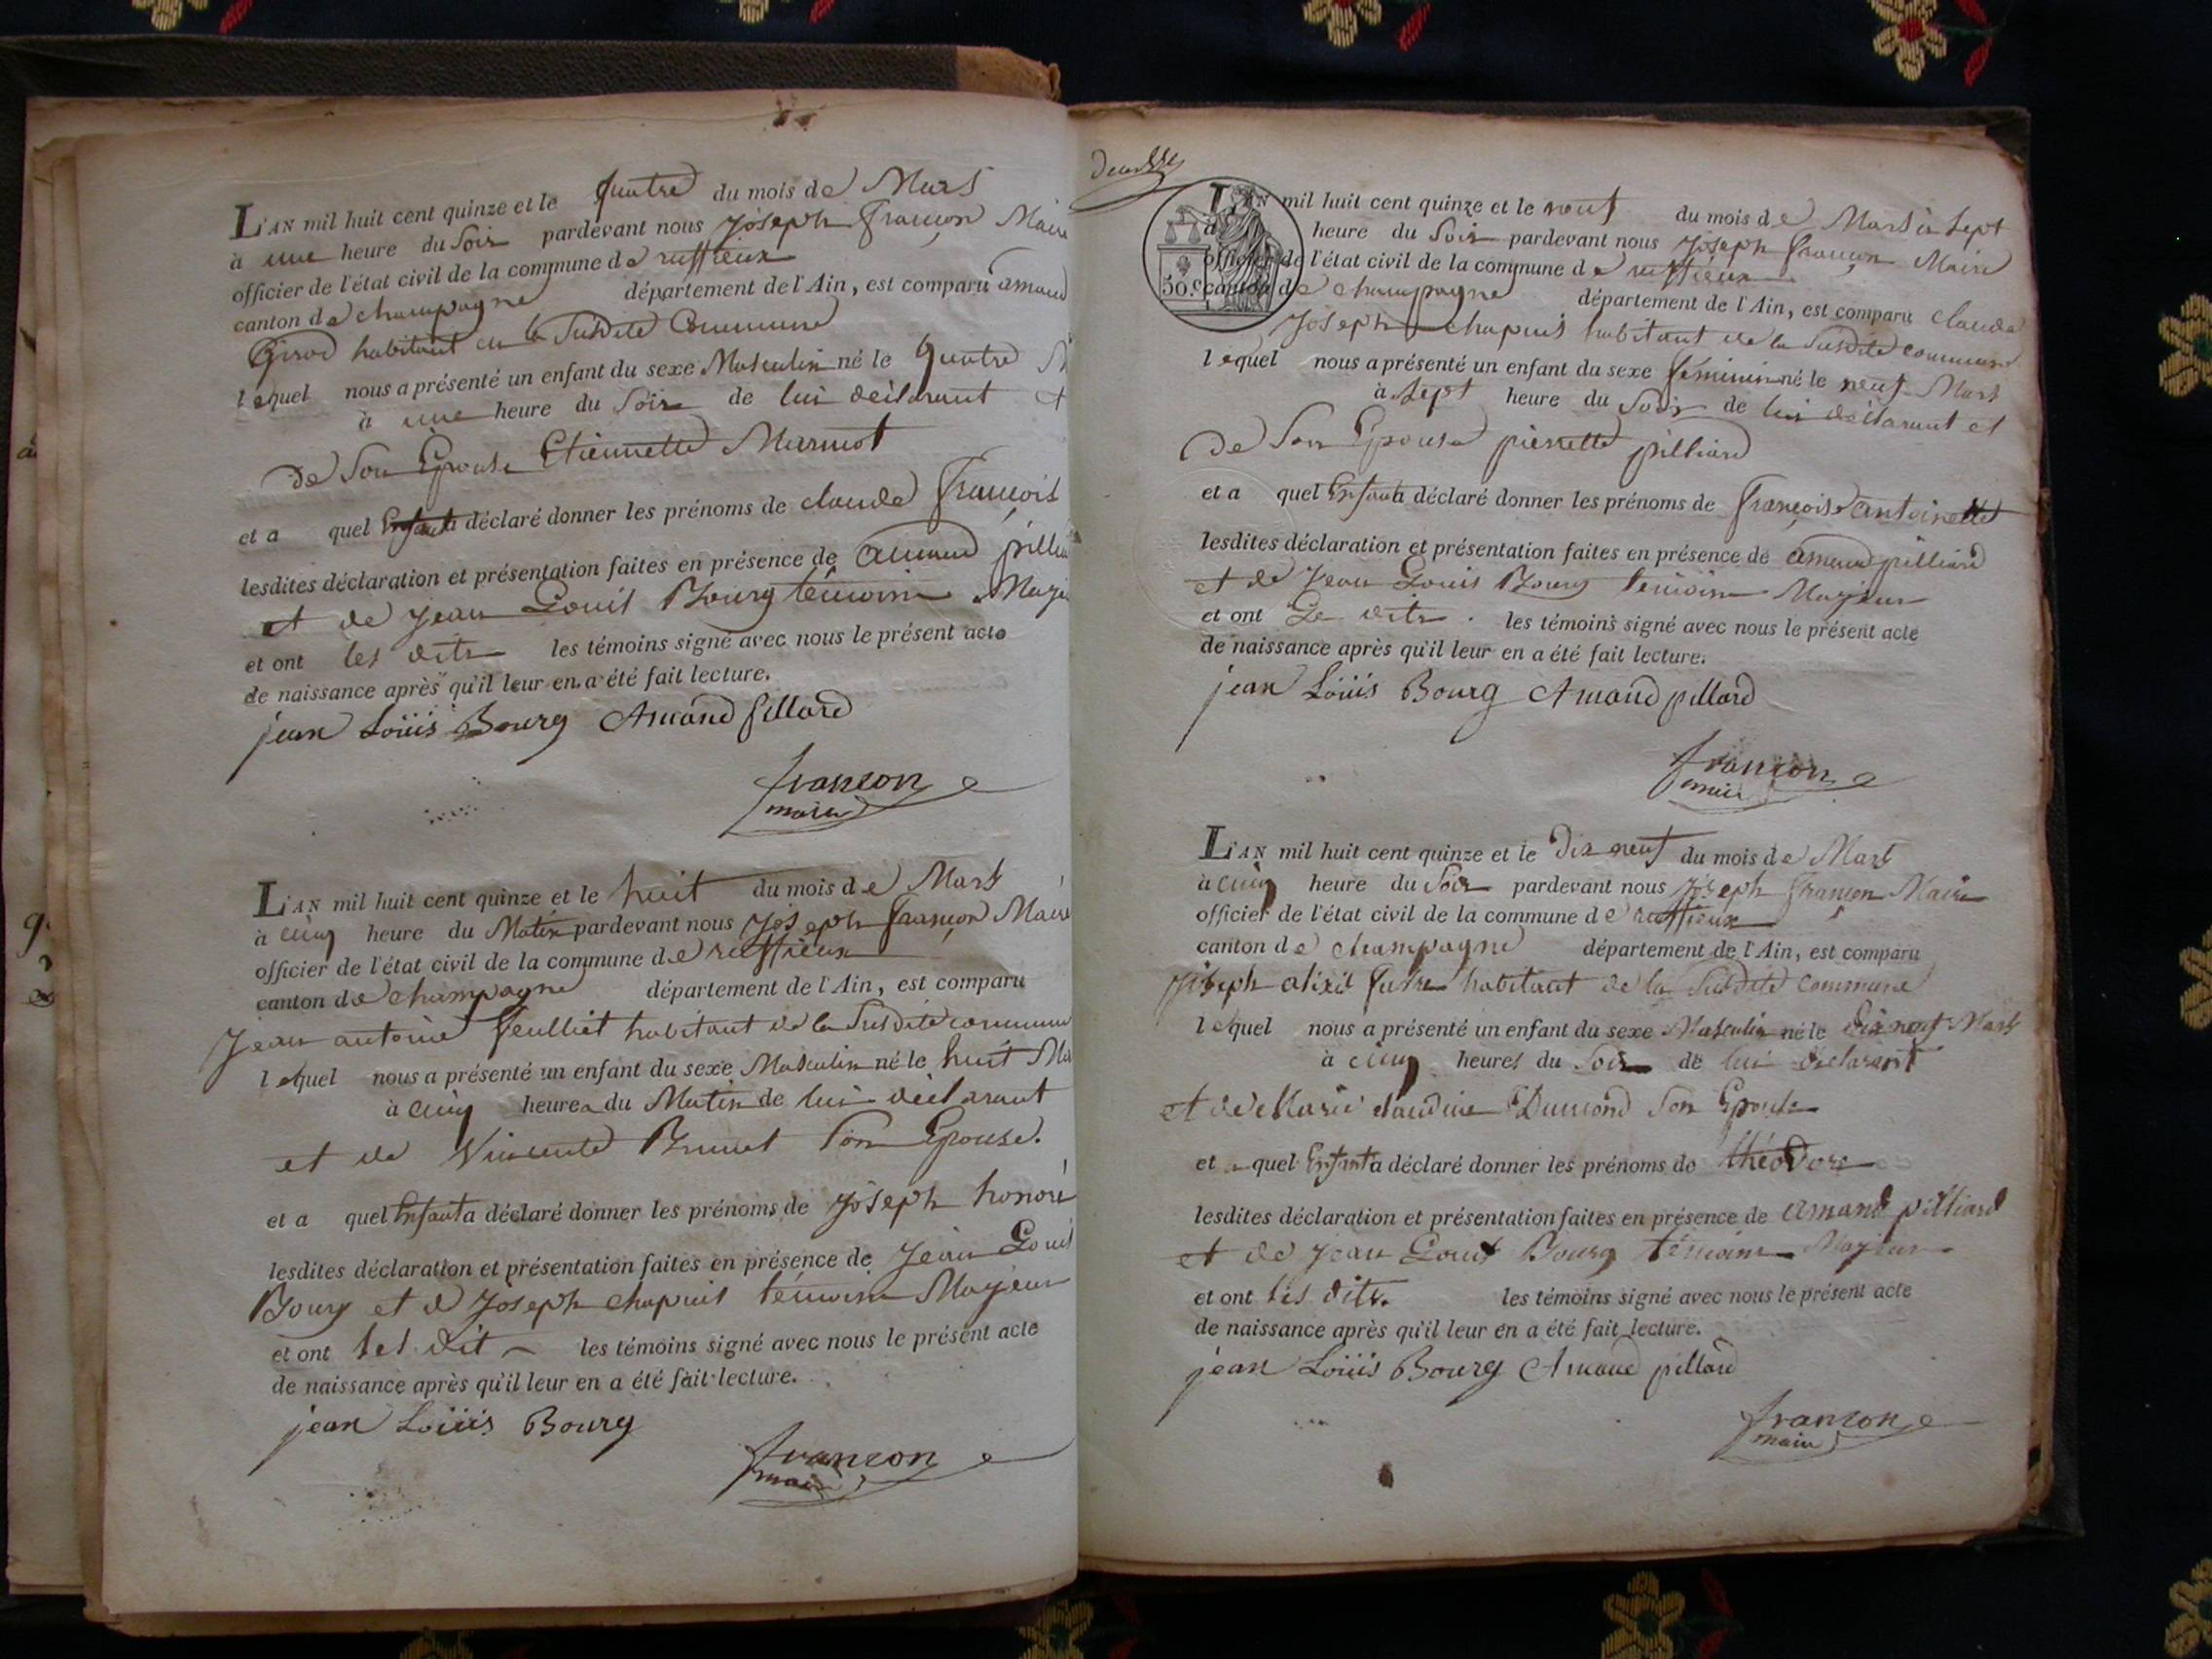 L'AN mil huit cent quinze et le quatre du mois de Mars
à une heure du Soir pardevant nous joseph françon Maire
officier de l'état civil de la commune de ruffieux
canton de champagne département de l'Ain, est comparu amand
Girod habitant en la Susdite Commune
lequel nous a présenté un enfant du sexe Masculin né le quatre
à une heure du Soir de lui déclarant et
de Son Epouse Etiennette Marmot
et a quel Enfant a déclaré donner les prénoms de claude françois
lesdites déclaration et présentation faites en présence de amand
et de jean Louis Bourg témoins
et ont les dits les témoins signé avec nous le présent acte
de naissance après qu'il leur en a été fait lecture.
jean Loüis Bourg Amand pillard
françon
maire
L'AN mil huit cent quinze et le huit du mois de Mars
à cinq heure du Matin pardevant nous joseph françon Maire
officier de l'état civil de la commune de ruffieux
canton de champagne département de l'Ain, est comparu
jean antoine feulliet habitant de la Susdite commune
lequel nous a présenté un enfant du sexe Masculin né le huit
à cinq heures du Matin de lui déclarant
et de Vincente Brunet Son Epouse.
et a quel Enfant a déclaré donner les prénoms de joseph honoré
lesdites déclaration et présentation faites en présence de jean Louis
Bourg et de joseph chapuis témoins Majeur
et ont les dit les témoins signé avec nous le présent acte
de naissance après qu'il leur en a été fait lecture.
jean Loüis Bourg
françon
maire
50.c
L'AN mil huit cent quinze et le neuf du mois de Mars à Sept
à heure du Soir pardevant nous joseph françon Maire
officier de l'état civil de la commune de ruffieux
canton de champagne département de l'Ain, est comparu claude
joseph chapuis habitant de la Susdite commune
lequel nous a présenté un enfant du sexe féminin né le neuf Mars
à Sept heure du Soir de lui déclarant et
de Son Epouse pierrette pilliard
et a quel Enfant a déclaré donner les prénoms de françoise antoinette
lesdites déclaration et présentation faites en présence de amand pilliard
et de jean Louis Bourg témoins Majeur
et ont Les dits . les témoins signé avec nous le présent acte
de naissance après qu'il leur en a été fait lecture.
jean Loüis Bourg Amand pillard
françon
maire
L'AN mil huit cent quinze et le Dix neuf du mois de Mars
à cinq heure du Soir pardevant nous joseph françon Maire
officier de l'état civil de la commune de ruffieux
canton de champagne département de l'Ain, est comparu
joseph alixis habitant de la Susdite commune
lequel nous a présenté un enfant du sexe Masculin né le dix neuf Mars
à cinq heures du Soir de lui déclarant
et de Marie claudine Dumond Son Epouse
et a quel Enfant a déclaré donner les prénoms de théodore
lesdites déclaration et présentation faites en présence de amand pilliard
et de jean Louis Bourg témoins Majeur
et ont les dits. les témoins signé avec nous le présent acte
de naissance après qu'il leur en a été fait lecture.
jean Loüis Bourg Amand pillard
françon
maire